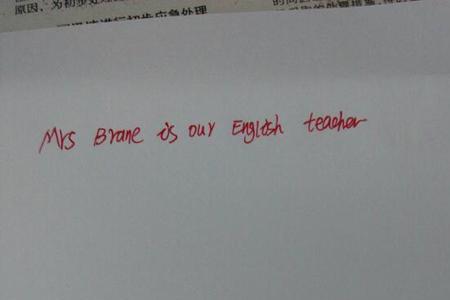 原因，为初步处理
进行初步应急处理
Mrs Brane is our English teacher